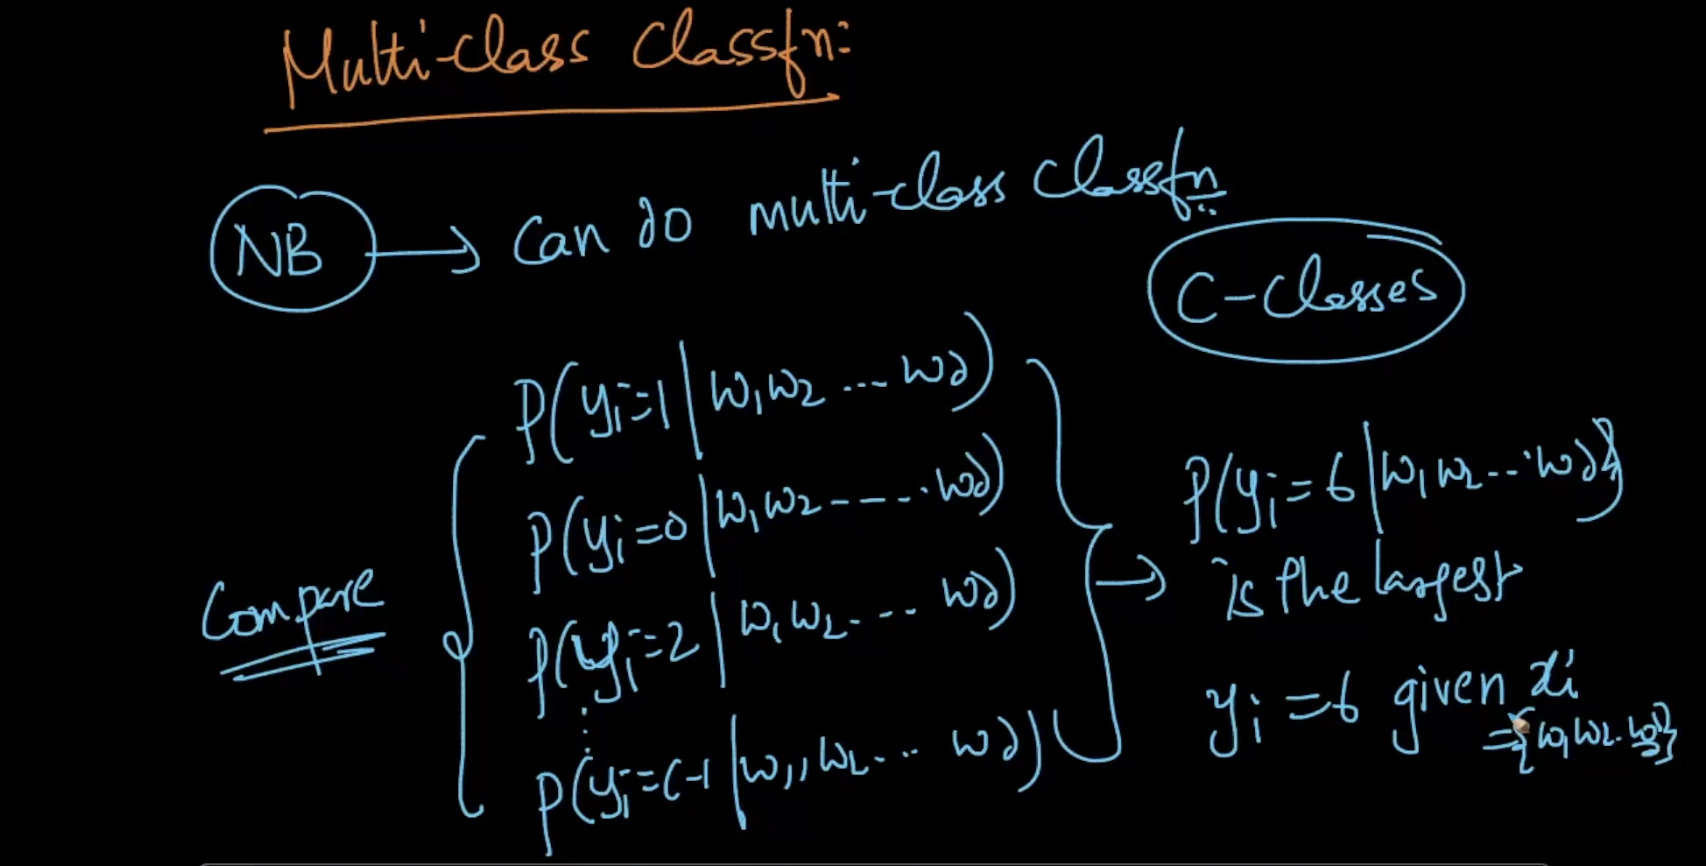 Multi-class Classfn:
NB → Can do multi-class Classfn
C-Classes
P(yi=1|w1w2...wd)
P(yi=0|w1w2----..wd)
P(yi=2|w1w2...wd)
⋮
P(yi=C-1|w1,w2...wd)
Compare
P(yi=6|w1w2...wd)
is the largest
yi=6 given xi
={w1w2..wd}